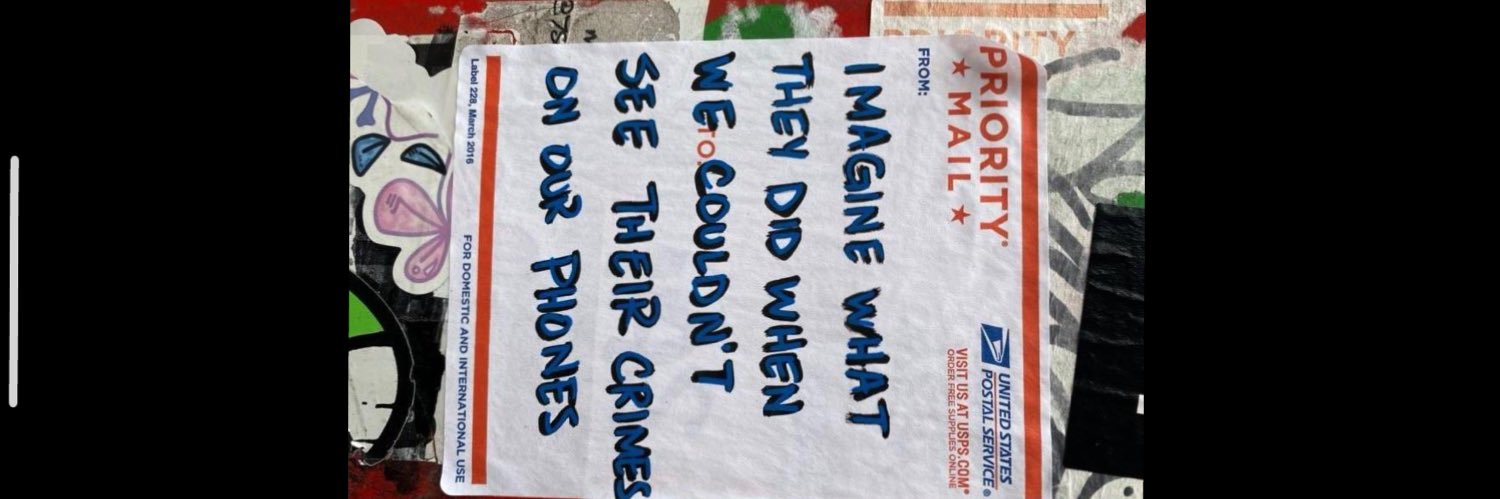 PRIORITY®
★ MAIL ★
UNITED STATES
POSTAL SERVICE®
VISIT US AT USPS.COM®
ORDER FREE SUPPLIES ONLINE
FROM:
IMAGINE WHAT
THEY DID WHEN
WE COULDN'T
TO:
SEE THEIR CRIMES
ON OUR PHONES
Label 228, March 2016
FOR DOMESTIC AND INTERNATIONAL USE